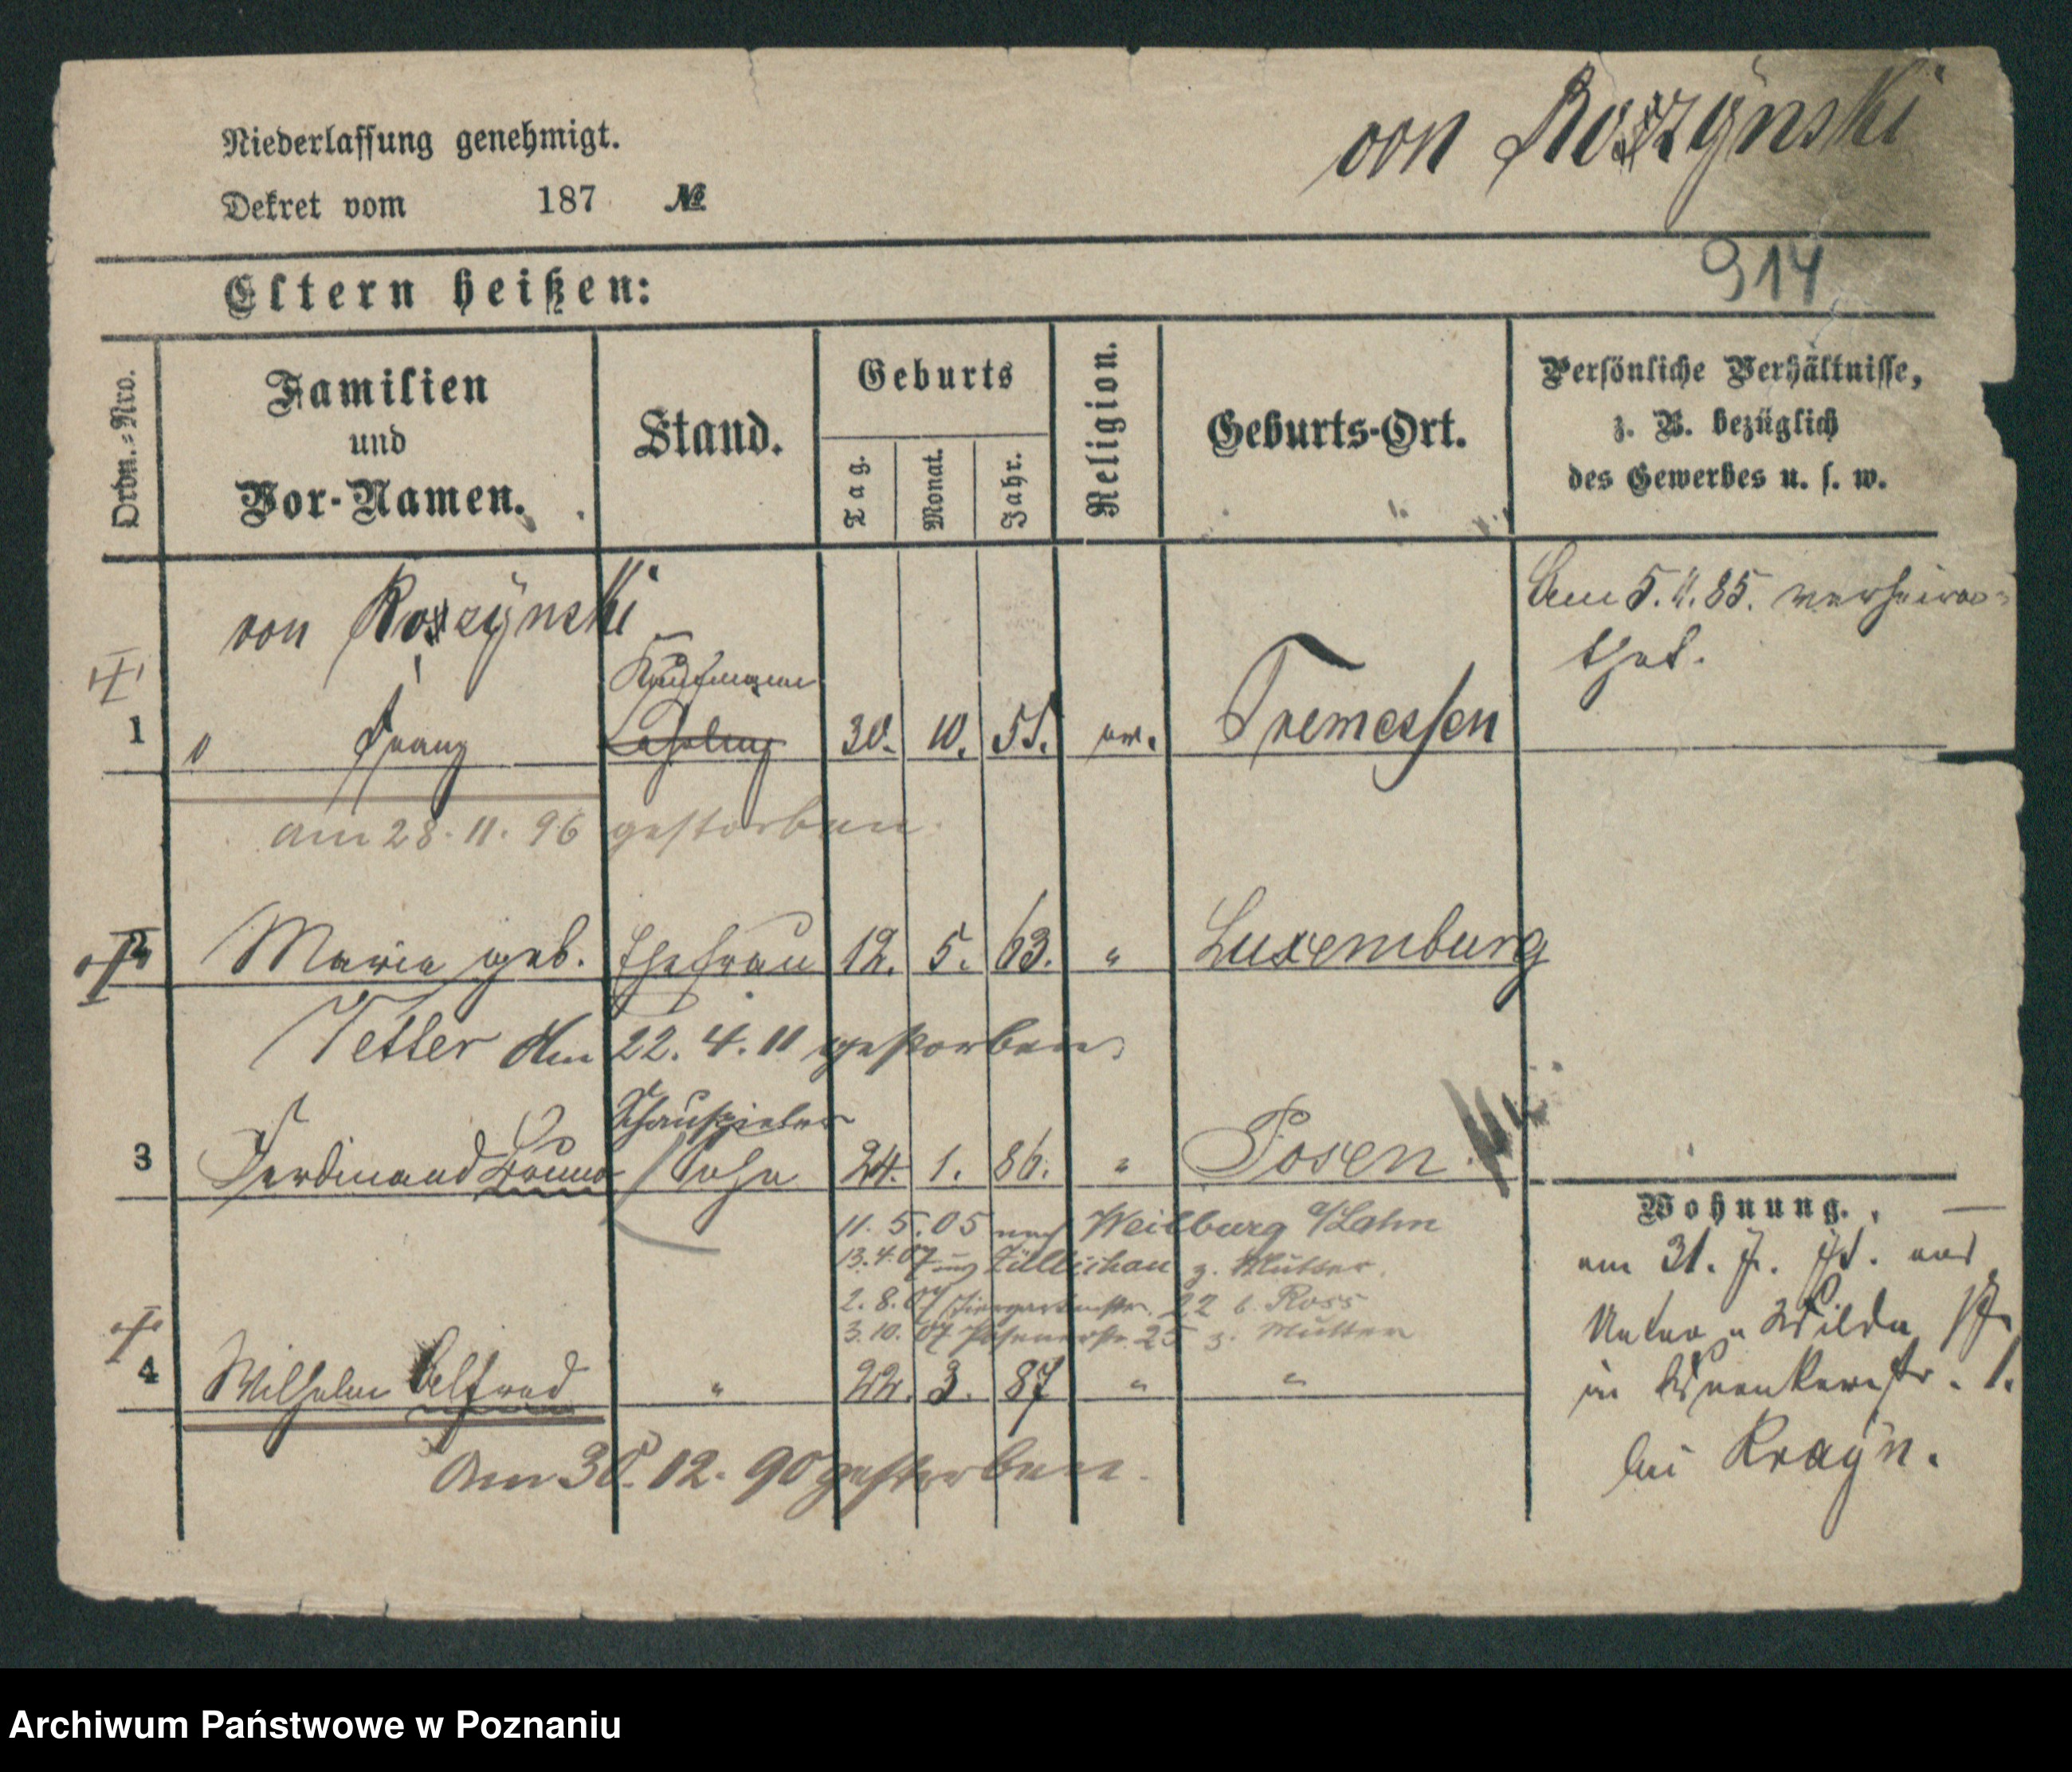 von Roszÿnski
Niederlassung genehmigt.
Dekret vom 187 №
914
Eltern heißen:
Ordn.=Nro.
Familien
und
Vor-Namen.
Stand.
Geburts
Tag.
Monat.
Jahr.
Religion.
Geburts-Ort.
Persönliche Verhältnisse,
z. B. bezüglich
des Gewerbes u. s. w.
von Roszÿnski
Am 5. 11. 85. verheira=
thet.
Kaufmann
1 Franz Lehrling 30. 10. 55. ev. Tremessen
am 28. 11. 96 gestorben.
2 Maria geb. Ehefrau 12. 5. 63. " Luxemburg
Tetter Am 22. 4. 11 gestorben.
Schauspieler
3 Ferdinand Bruno Sohn 24. 1. 86. " Posen
11. 5. 05 nach Weilburg a/Lahn
13. 4. 07 Züllichau z. Mutter.
2. 8. 07 Tiergartenstr. 22 b. Ross
3. 10. 07 Posenerstr. 25 z. Mutter
4 Wilhelm Alfred " 22. 3. 87 " "
Am 30. 12. 90 gestorben.
Wohnung.
am 31. 7. 71. aus
Unter Wilda 17.
in Kronkerstr. 1.
bei Kraÿn.
Archiwum Państwowe w Poznaniu